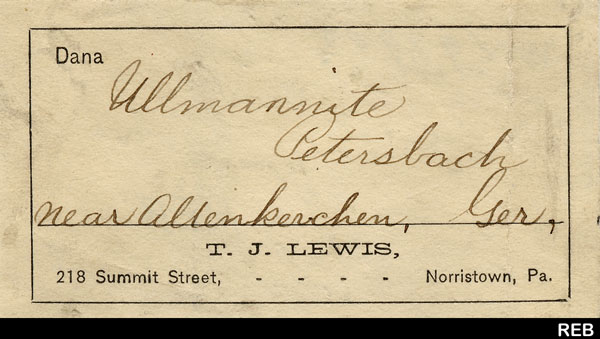 Dana
Ullmannite
Petersbach
near Altenkerchen, Ger,
T. J. LEWIS,
218 Summit Street, - - - - Norristown, Pa.
REB